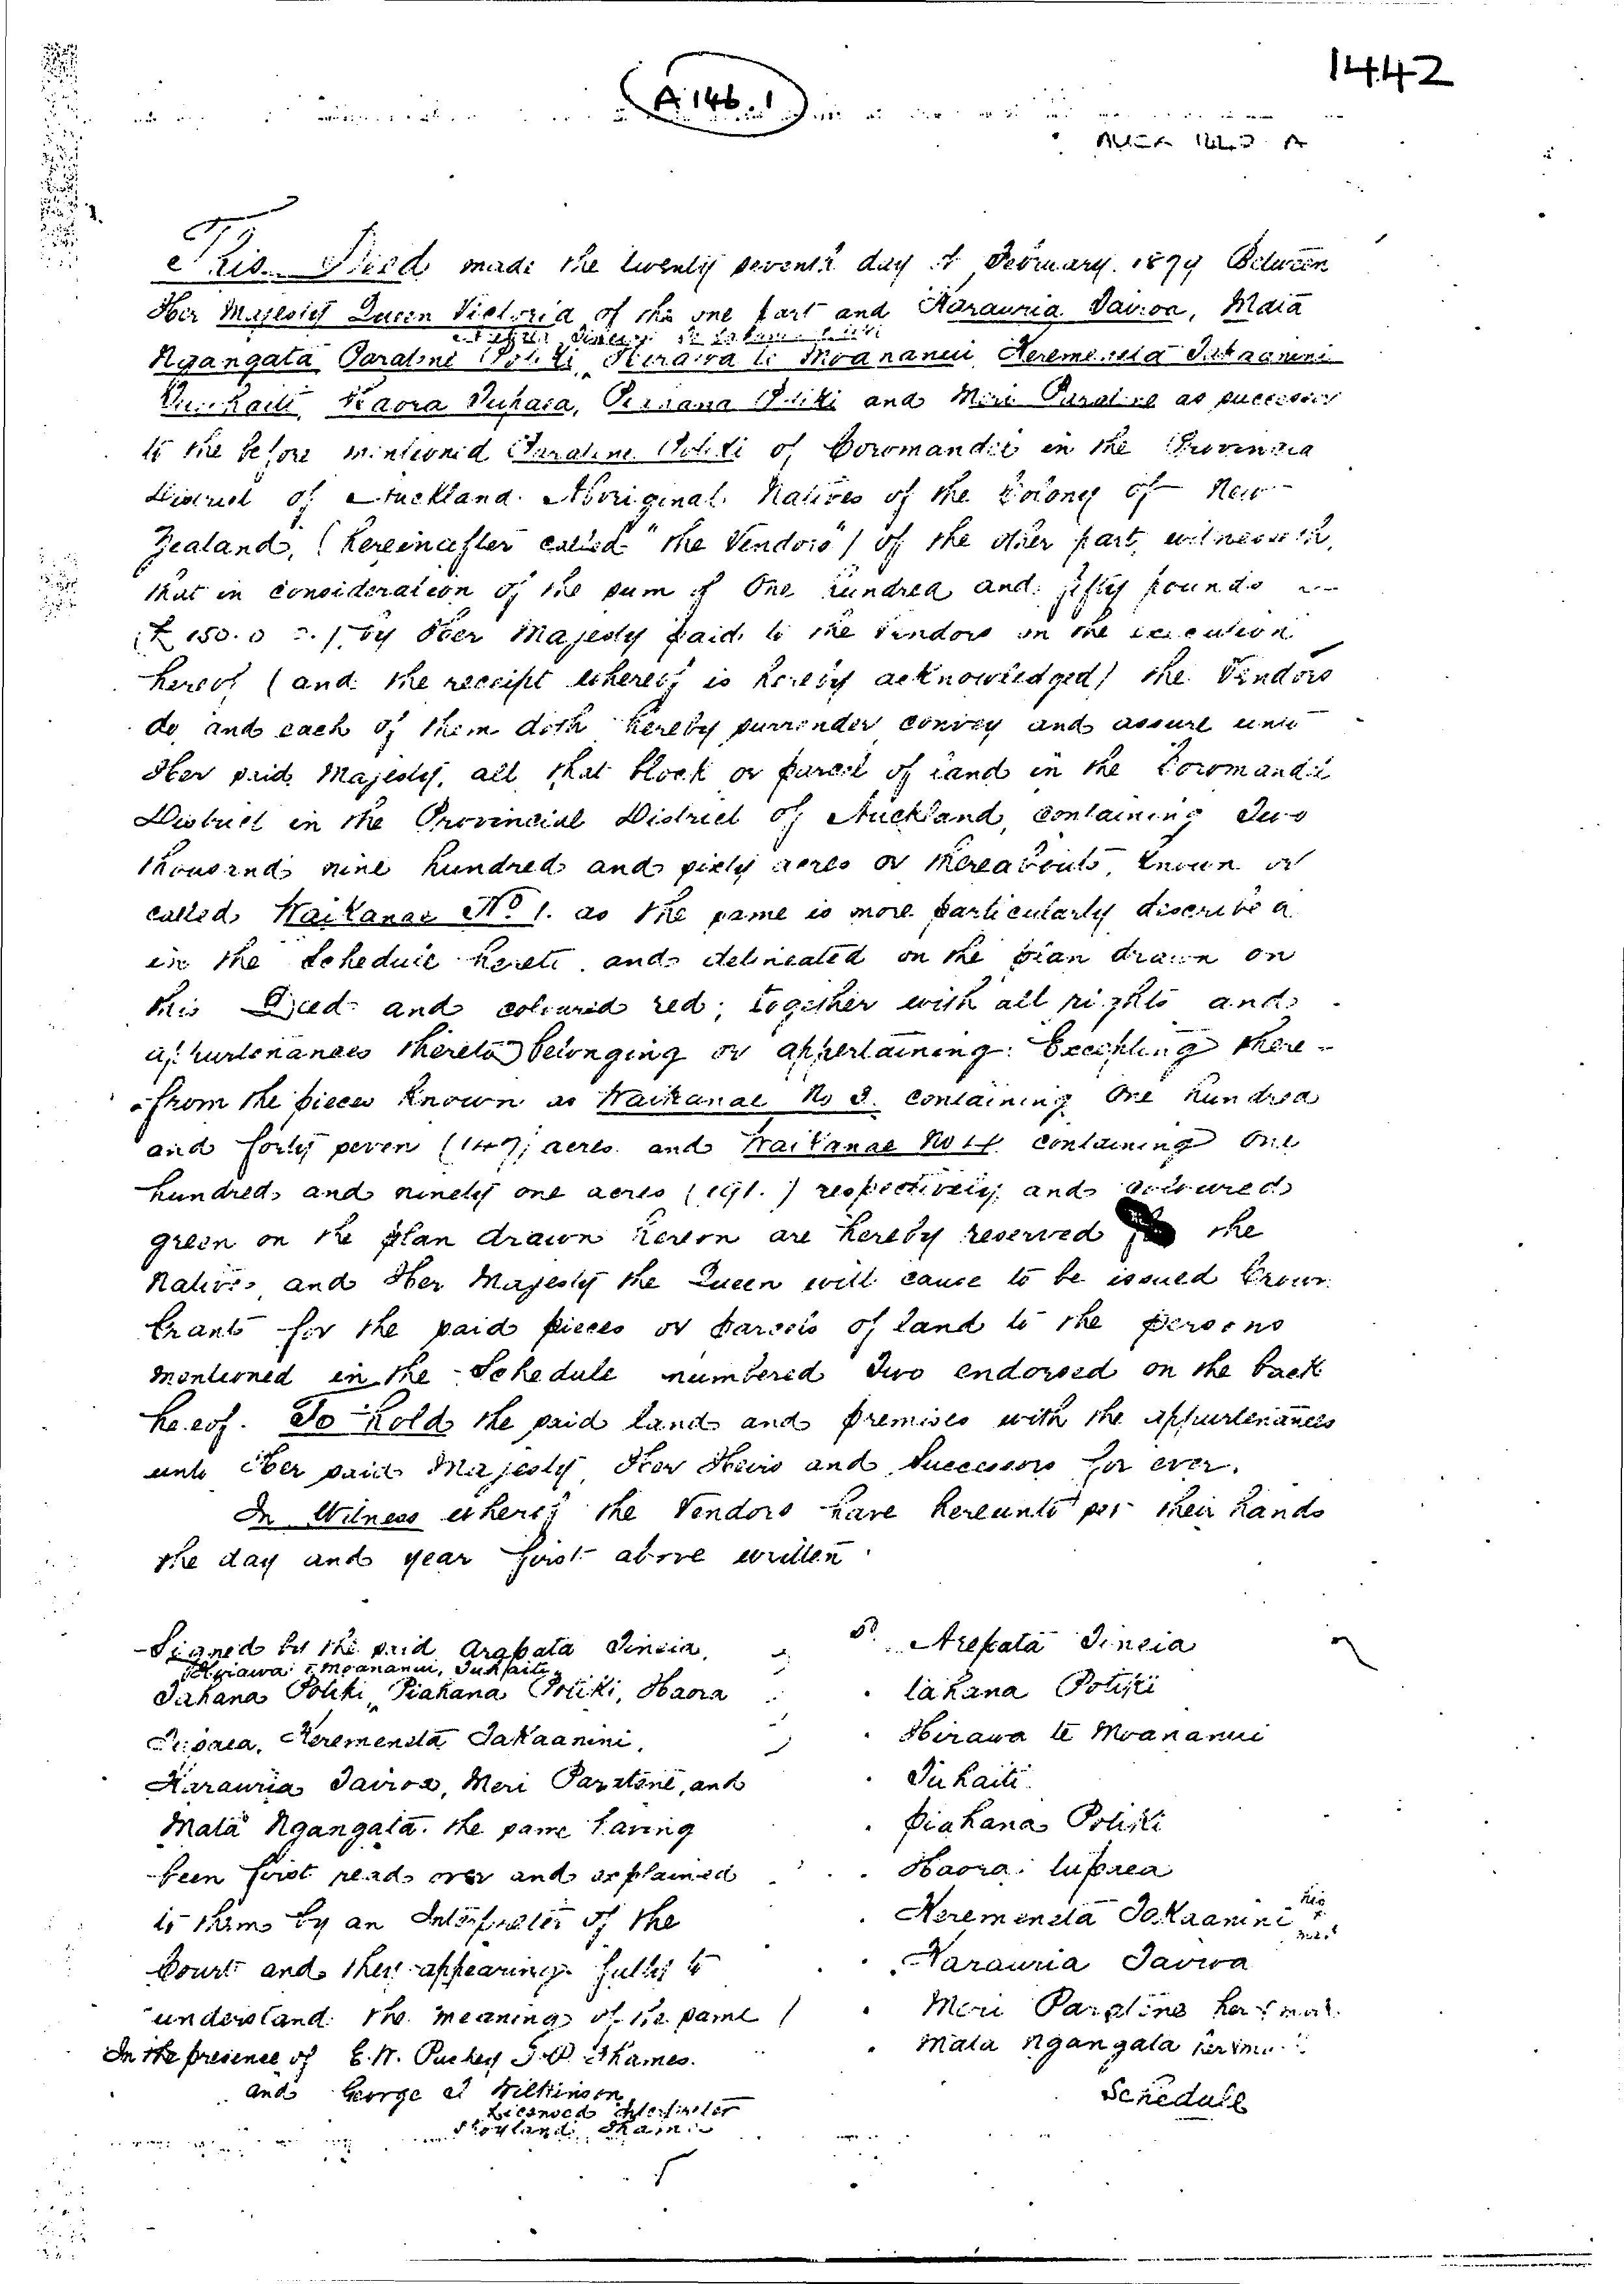 1442
A 146.1
This Deed made the twenty seventh day of February 1879 Between
Her Majesty Queen Victoria of the one part and Karauria Tairoa, Mata
Ngangata Paratene Potiki, Hirawa te Moananui, Keremeneta Takaanini
Tuhaiti, Haora Tupaea, Piahana Potiki and Meri Paratene as successor
to the before mentioned Paratene Potiki of Coromandel in the Provincial
District of Auckland Aboriginal Natives of the Colony of New
Zealand, (hereinafter called "the Vendors") of the other part, witnesseth,
that in consideration of the sum of One hundred and fifty pounds
(£150.0 ) by Her Majesty paid to the Vendors on the execution
hereof (and the receipt whereof is hereby acknowledged) the Vendors
do and each of them doth hereby surrender convey and assure unto
Her said Majesty, all that block or parcel of land in the Coromandel
District in the Provincial District of Auckland, containing Two
thousand nine hundred and sixty acres or thereabouts, known or
called Waikanae No 1. as the same is more particularly described
in the Schedule hereto and delineated on the plan drawn on
this Deed and coloured red; together with all rights and
appurtenances thereto belonging or appertaining. Excepting there-
-from the pieces known as Waikanae No 3. containing One hundred
and forty seven (147) acres and Waikanae No 4 containing One
hundred and ninety one acres (191.) respectively and coloured
green on the plan drawn hereon are hereby reserved the
Natives and Her Majesty the Queen will cause to be issued Crown
Grants for the said pieces or parcels of land to the persons
mentioned in the Schedule numbered Two endorsed on the back
hereof. To hold the said land and premises with the appurtenances
unto Her said Majesty Her Heirs and Successors for ever.
In Witness whereof the Vendors have hereunto set their hands
the day and year first above written.
Signed by the said Arapata Tineia,
Hirawa te Moananui, Tuhaiti
Tahana Potiki, Piahana Potiki, Haora
Tupaea, Keremeneta Takaanini,
Karauria Tairoa, Meri Paratene, and
Mata Ngangata. the same having
been first read over and explained
to them by an Interpreter of the
Court and they appearing fully to
understand the meaning of the same )
In the presence of E.W. Puckey J.P. Thames.
and George Wilkinson
Licensed Interpreter
Shortland Thames
Arepata Tineia
tahana Potiki
Hirawa te Moananui
Tuhaiti.
piahana Potiki
Haora tupaea
Keremeneta Takaanini his x mark
Karauria Tairoa
Meri Paratene her x mark
Mata Ngangata her x mark
Schedule